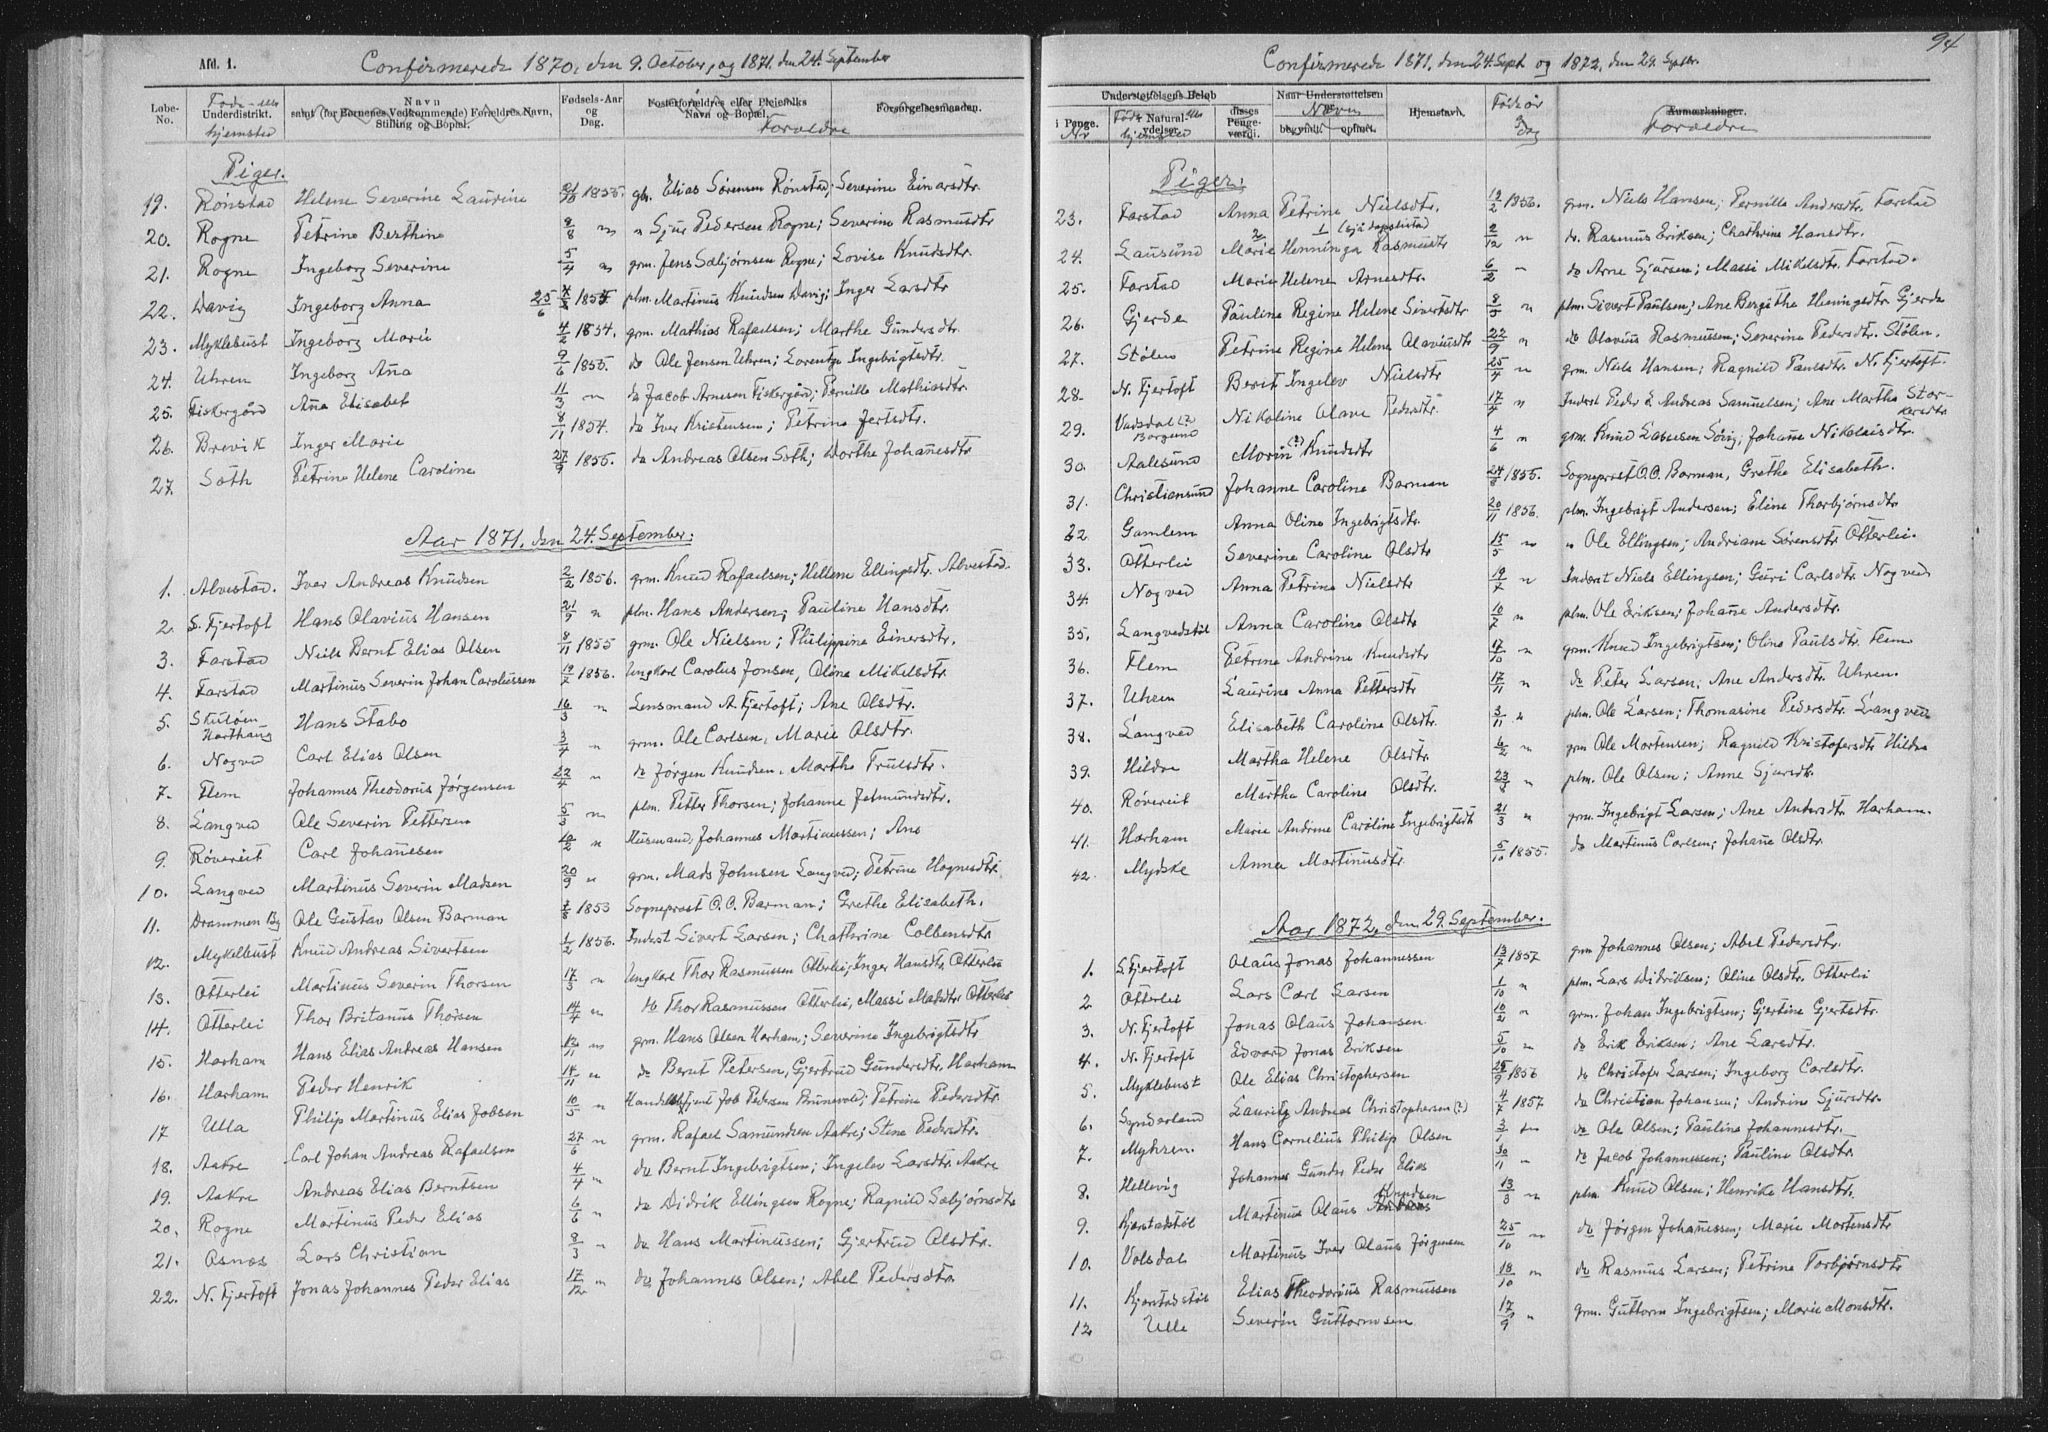 Afd. 1.
Confirmerede 1870, den 9. October, og 1871. den 24. September
Løbe-No.
Føde- eller Hjemsted Underdistrikt.
Navn samt (for Børnenes Vedkommende) Forældres Navn, Stilling og Bopæl.
Fødsels-Aar og Dag.
Fosterforældres eller Pleiefolks Navn og Bopæl.
Forældre
Forsørgelsesmaaden.
Piger.
19. Rønstad Helene Severine Laurine 1855. gbr. Elias Sørensen Rønstad; Severine Einarsdtr.
20. Rogne Petrine Berthine 8/8 " " Sjur Pedersen Rogne; Severine Rasmusdtr
21. Rogne Ingeborg Severine 5/4 " grm. Jens Sæbjørnsen Rogne; Lovise Knudsdtr.
22. Davig Ingeborg Anna 25/6 1855 plm. Martinus Knudsen Davig; Inger Larsdtr
23. Myklebust Ingeborg Marie 4/2 1854. grm. Mathias Rafaelsen; Marthe Gundersdtr.
24. Uhren Ingeborg Aña 9/6 1855. do Ole Jensen Uhren; Lorentze Ingebrigtsdtr.
25. Fiskergård Aña Elisabet 11/3 " do Jacob Arnesen Fiskergård; Pernille Mathiasdtr.
26. Brevik Inger Marie 8/11 1854. do Iver Kristensen; Petrine Jertsdtr.
27. Søth Petrine Helene Caroline 27/9 1855. do Andreas Olsen Søth; Dorthe Johañesdtr
Aar 1871. den 24. September.
1. Alvestad. Iver Andreas Knudsen 2/2 1856. grm. Knud Rafaelsen; Hellene Ellingsdtr. Alvestad.
2. S. Fjertoft Hans Olavius Hansen 21/9 " plm. Hans Andersen; Pauline Hansdtr.
3. Farstad Niels Bernt Elias Olsen 8/11 1855 grm. Ole Nielsen; Philippine Einersdtr.
4. Farstad Martinus Severin Johan Carolussen 19/7 1856. Ungkarl Carolus Jonsen, Oline Mikelsdtr.
5. Skuløen Hans Stabo 16/3 " Lensmand A. Fjertoft; Ane Olsdtr.
6. Nogva Carl Elias Olsen 3/4 " grm. Ole Carlsen, Marie Olsdtr.
7. Flem Johannes Theodorus Jørgensen 22/4 " do Jørgen Knudsen. Marthe Trulsdtr.
8. Langved Ole Severin Pettersen 5/3 " plm. Petter Thorsen; Johanne Jetmundsdtr.
9. Røvereit Carl Johañesen 10/2 " Husmand, Johannes Martinussen; Ane
10. Langved Martinus Severin Madsen 20/9 " grm. Mads Johnsen Langved; Petrine Hognesdtr
11. Drammen By Ole Gustav Olsen Barman 1853 Sogneprost O. C. Barman; Grethe Elisabeth.
12. Mykelbust Knud Andreas Sivertsen 1/2 1856. Inderst Sivert Larsen; Chathrine Colbensdtr
13. Otterlei Martinus Severin Thorsen 17/3 " Ungkarl Thor Rasmussen Otterlei; Inger Hansdtr. Otterlei
14. Otterlei Thor Britanus Thorsen 14/4 " do Thor Rasmussen Otterlei, Massi Madsdtr Otterlei
15. Harham Hans Elias Andreas Hansen 12/11 " grm. Hans Olsen Harham; Severine Ingebrigtsdtr
16. Harham Peder Henrik 14/11 " do Bernt Petersen, Gjertrud Gundersdtr. Harham
17 Ulla Philip Martinus Elias Jobsen 10/5 " Job Pedersen Brunevold; Petrine Pedersdtr.
18. Aakre Carl Johan Andreas Rafaelsen 27/6 " grm. Rafael Samundsen Aakre; Stene Pedersdtr.
19. Aakre Andreas Elias Berntsen 4/4 " do Bernt Ingebrigtsen; Ingelev Larsdtr Aakre
20. Rogne Martinus Peder Elias 6/6 " do Didrik Ellingsen Rogne; Ragnild Sæbjørnsdtr
21. Asnæs Lars Christian 8/3 " do Hans Martinussen; Gjertrud Olsdtr.
22. N. Fjertoft Jonas Johannes Peder Elias 17/12 " do Johannes Olsen; Abel Pedersdtr.
94
Confirmerede 1871. den 24. Sept og 1872. den 29. Septbr.
Understøttelsens Beløb
Naar Understøttelsen
i Penge.
Nr
Natural-ydelser.
Føde- eller hjemsted
disses Penge-værdi.
begyndt.
Navn
ophørt.
Hjemstavn.
Føds år og dag
Anmærkninger.
Forældre
Piger.
23. Farstad Anna Petrine Nielsdtr. 19/2 1856. grm. Niels Hansen; Pernille Andersdtr. Farstad
24. Lausund Marie Henninga Rasmusdtr 2/12 " do. Rasmus Eriksen; Chathrine Hansdtr.
25. Farstad Marie Helene Arnesdtr. 6/2 " do Arne Sjursen; Massi Mikelsdtr. Farstad.
26. Gjerde Pauline Regine Helene Sivertsdtr 8/5 " plm. Sivert Paulsen; Ane Bergithe Henningsdtr Gjerde
27. Stølen Petrine Regine Helene Olaviusdtr 22/9 " do Olavius Rasmussen; Severine Pedersdtr. Stølen.
28. N. Fjertoft Berit Ingelev Nielsdtr 25/4 " grm. Niels Hansen; Ragnild Paulsdtr. N. Fjertoft.
29. Borgund Nikoline Olave Pedersdtr. 17/4 " Inderst Peder & Andreas Samuelsen; Ane Martha Stor-
keredtr
30. Aalesund Morin (?) Knudsdtr 4/6 " grm. Knud Lassesen Søvig, Johañe Nikolaisdtr.
31. Christiansund Johanne Caroline Barman 24/8 1855. Sogneprost O. C. Barman, Grethe Elisabeth.
32 Gamlem Anna Oline Ingebrigtsdtr. 20/11 1856. plm. Ingebrigt Andersen; Eline Thorbjørnsdtr
33. Otterlei Severine Caroline Olsdtr 15/5 " " Ole Ellingsen; Andriane Sørensdtr Otterlei.
34. Nogved Anna Petrine Nielsdtr 19/7 " Inderst Niels Ellingsen; Guri Carlsdtr. Nogved
35. Langvedstøl Anna Caroline Olsdtr 10/7 " plm. Ole Eriksen; Johañe Andersdtr.
36. Flem Petrine Andrine Knudsdtr 17/10 " grm. Knud Ingebrigtsen; Oline Paulsdtr. Flem
37. Uhren Laurine Anna Pettersdtr 17/11 " do Peter Larsen, Ane Andersdtr. Uhren.
38. Langved Elisabeth Caroline Olsdtr. 3/11 " plm. Ole Larsen; Thomasine Pedersdtr. Langved
39. Hildre Martha Helene Olsdtr. 6/2 " grm Ole Mortensen; Ragnild Kristofersdtr Hildre
40. Røvereit Martha Caroline Olsdtr. 23/3 " plm. Ole Olsen; Anne Sjursdtr
41. Harham Marie Andrine Caroline Ingebrigtsdtr 21/3 " grm. Ingebrigt Larsen; Ane Andersdtr Harham.
42. Mydske Anna Martinusdtr. 5/10 1855. do Martinus Carlsen; Johañe Olsdtr.
Aar 1872, den 29. September.
1. S. Fjertoft Olaus Jonas Johannessen 13/7 1857 grm Johannes Olsen; Abel Pedersdtr.
2 Otterlei Lars Carl Larsen 1/10 " plm. Lars Didriksen; Oline Olsdtr. Otterlei
3. N. Fjertoft Jonas Olaus Johansen 10/2 " grm. Johan Ingebrigtsen; Gjertine Gjertsdtr.
4. N. Fjertoft Edvard Jonas Eriksen 5/10 " do Erik Eriksen; Ane Larsdtr.
5. Myklebust Ole Elias Christophersen 25/9 1856 do Christofer Larsen; Ingeborg Carlsdtr.
6. Synderland Lauritz Andreas Christophersen (?) 4/7 1857 do Christian Johansen; Andrine Sjursdtr.
7. Myhren. Hans Cornelius Philip Olsen 3/1 " do Ole Olsen; Pauline Johannesdtr.
8. Hellevig Johannes Gunder Peder Elias 30/11 " do Jacob Johannessen; Pauline Olsdtr.
9. Kjerstadstøl Martinus Olaus Knudsen 13/3 " plm. Knud Olsen; Henrike Hansdtr.
10. Volsdal Martinus Iver Olaus Jørgensen 25/10 " do Jørgen Johañessen; Marie Mortensdtr
11. Kjerstadstøl Elias Theodorius Rasmussen 18/10 " do Rasmus Larsen; Petrine Torbjørnsdtr
12 Ulle Severin Guttormsen 17/9 " grm. Guttorm Ingebrigtsen; Marie Monsdtr.